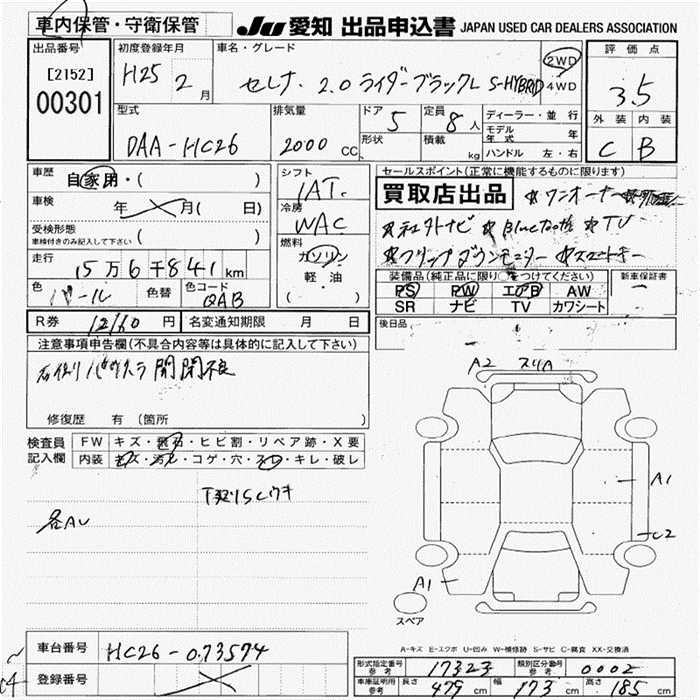 車内保管・守衛保管
JU 愛知 出品申込書 JAPAN USED CAR DEALERS ASSOCIATION
出品番号
[2152]
00301
初度登録年月
H25 2月
車名・グレード
セレナ 2.0 ライダーブラックL S-HYBRID
2WD
4WD
評価点
3.5
外装 内装
C B
型式
DAA-HC26
排気量
2000 CC
ドア 5
形状
定員 8人
積載 kg
ディーラー・並行
モデル年式 年
ハンドル 左・右
車歴 自家用・( )
車検 年 月( 日)
受検形態
車検付きのみ記入して下さい ( )
走行 15万6千841km
色 パール 色替 色コード QAB
シフト
IAT.
冷房
WAC
燃料
ガソリン
軽・油
( )
セールスポイント(正常に機能するものに限ります)
買取店出品 ☆ワンオーナー
☆社外ナビ ☆Bluetooth ☆TV
☆フリップダウンモニター ☆スマートキー
装備品(純正品に限り○をつけてください) 新車保証書
PS PW エアB AW
SR ナビ TV カワシート
R券 12160 円 名変通知期限 月 日
後日品
注意事項申告欄(不具合内容等は具体的に記入して下さい)
右後リ パワスラ 開閉不良
修復歴 有(箇所 )
検査員記入欄
FW キズ・飛石・ヒビ割・リペア跡・X要
内装 キズ・汚れ・コゲ・穴・スレ・キレ・破レ
各AU
A2 スリA
A1
C2
A1
スペア
A-キズ E-エクボ U-凹み W-補修跡 S-サビ C-腐食 XX-交換済
車台番号 HC26-073574
登録番号
形式指定番号 参考 17323 類別区分番号 参考 0002
車庫証明用 参考 長さ 479cm 幅 173cm 高さ 185cm